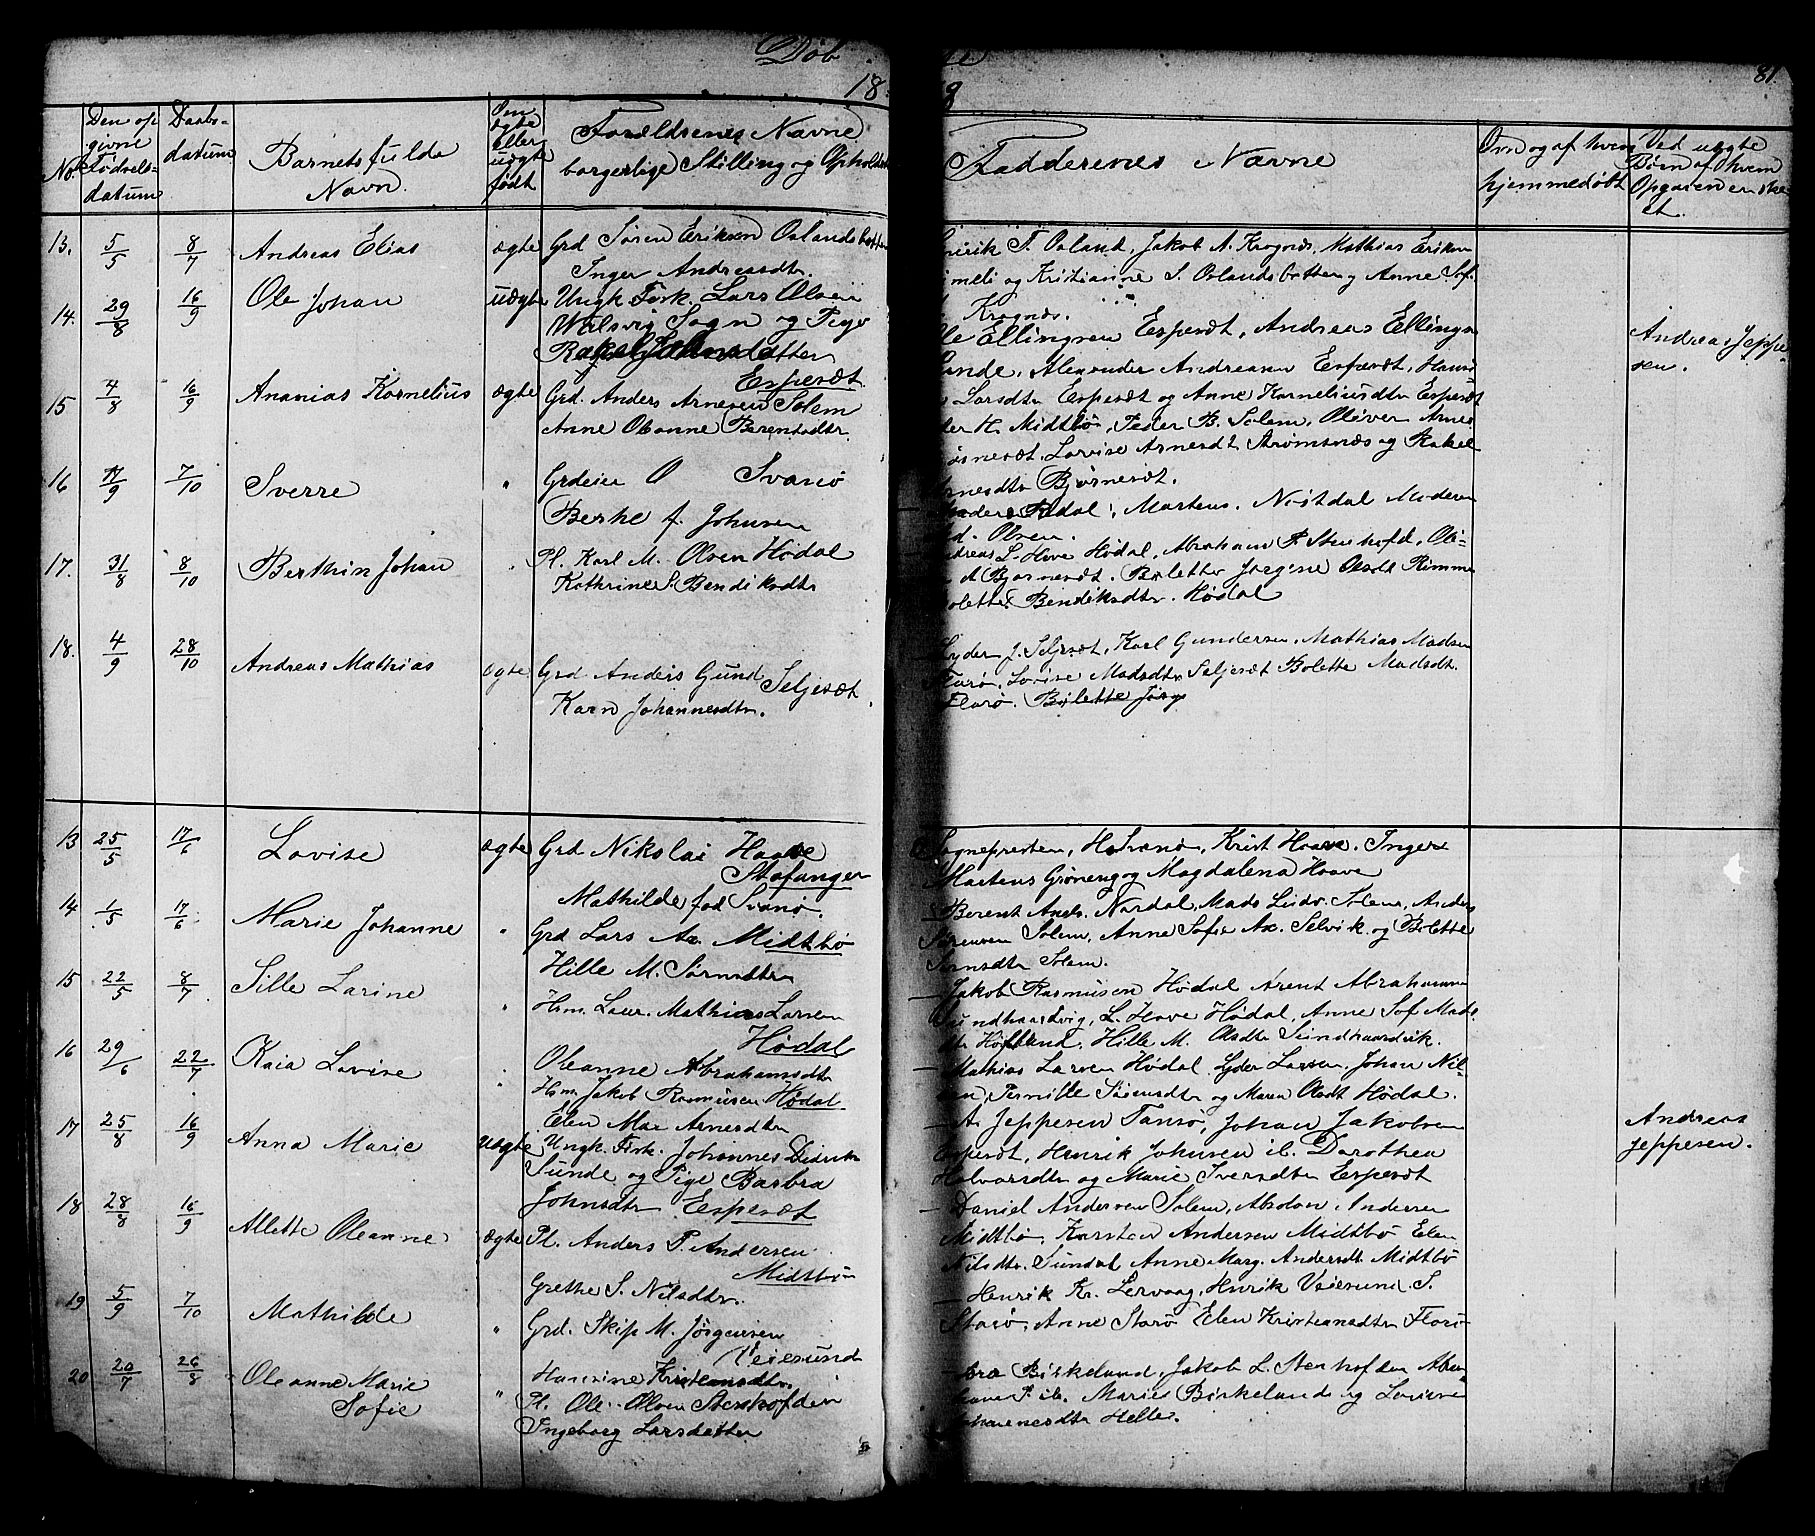 Døb
18
81
Den op
givne
Fødsels-
datum
No
Daabs-
datum
Barnets fulde
Navn.
Om
ægte
Eller
uægte
født
Forældrenes Navne
borgerlige Stilling og Opholds
Fadderenes Navne
Om og af hvem
hjemmedøbt
Ved uægte
Børn af hvem
Opgaven er ske
et.
13. 5/5 8/7 Andreas Elias ægte Grd Søren Eriksen Oslandsbotten
Inger Andreasdtr.
T. Osland, Jakob A. Krognæs, Mathias Eriksen
og Kristianne S. Oslandsbotten og Anne Sof.
Krognæs.
14. 29/8 16/9 Ole Johan uægte Ungk. Fisk. Lars Olsen
Sogn og Pige
Espesæt
Ellingsen Espesæt, Andreas Ellings
Alexander Andreasen Espesæt, Hans
Larsdtr Espesæt og Anne Korneliusdtr Espesæt
Andreas Jeppe
sen.
15 4/8 16/9 Ananias Kornelius ægte Grd. Anders Arnesen Solem
Anne Oleanne Berentsdtr.
H. Midtbø, Peder B. Solem, Oliver Arnes
Lovise Arnesdt Strømsnæs og Rakel
Bjørnesæt.
16 /9 7/10 Sverre " Grdeier O Svanø
Berke f. Johnsen
Martens. Nøstdal Moderen
Olsen.
17. 31/8 8/10 Berthin Johan " Pl. Karl M. Olsen Hødal
Kathrine S. Bendiksdtr
L. Hove Hødal, Abraham P. Stenhofd, Oli-
Bjørnesæt. Bolette Jørgine Olsdt Rimme
Bendiksdtr. Hødal
18. 4/9 28/10 Andreas Mathias ægte Grd Anders Gund Seljesæt
Karn Johannesdtr.
Lyder J. Seljesæt, Karl Gundersen, Mathias Madsen
Florø, Lovise Madsdtr Seljesæt Bolette Madsdt.
Florø. Bolette Jørg
13 25/5 17/6 Lovise ægte Grd Nikolai Haave
Stafanger
Mathilde fød Svanø.
Sognepresten, H. Svanø, Krist Haave. Inger
Martens Grøneng og Magdalena Haave
14 1/5 17/6 Marie Johanne " Grd Lars Ax. Midtbø
Hille M. Sørnsdtr
Berent Anders. Nordal, Mads Ludv. Solem, Anders
Sørensen Solem, Anne Sofie Ax. Selvik og Bolette
Solem.
15 22/5 8/7 Sille Larine " Hsm. Laur. Mathias Larsen
Hødal
Oleanne Abrahamsdtr
Jakob Rasmusen Hødal Arent Abrahamsen
L. Hove Hødal, Anne Sof Mads
Hille M. Olsdtr
16 29/6 22/7 Kaia Lovise " Hsm. Jakob Rasmusen Hødal
Elen Mar Arnesdtr
Mathias Larsen Hødal Lyder Larsen, Johan Nil-
Pernille Sørensdtr og Maren Olsdt Hødal.
17 25/8 16/9 Anna Marie uægte Ungk. Fisk. Johannes Didriks
Sunde og Pige Barbra
Johnsdtr Espesæt
A. Jeppesen Tansø, Johan Jakobsen
Espesæt, Henrik Johnsen ib. Dorothea
Halvorsdtr og Marie Iversdtr Espesæt
Andreas
Jeppesen.
18 28/8 16/9 Allette Oleanne ægte Pl. Anders P. Andersen
Midtbø
Grethe S. Nilsdtr.
Daniel Andersen Solem, Absalon Andersen
Midtbø, Karsten Andersen Midtbø Elen
Nilsdtr. Sundal Anne Marg. Andersdt Midtbø
19 5/9 7/10 Mathilde " Grd. Skip M. Jørgensen
Veiesund
Hansine Kristensdtr.
Henrik Kr. Lervaag, Henrik Veiesund S.
Storø, Anne Storø Elen Kristensdtr Florø
20 20/7 26/8 Oleanne Marie
Sofie " Pl. Ole Olsen Stenhofden
Ingeborg Larsdatter
Birkelund, Jakob L. Stenhofden Abra
P. ib. Marie Birkelund og Lovise
Helle.